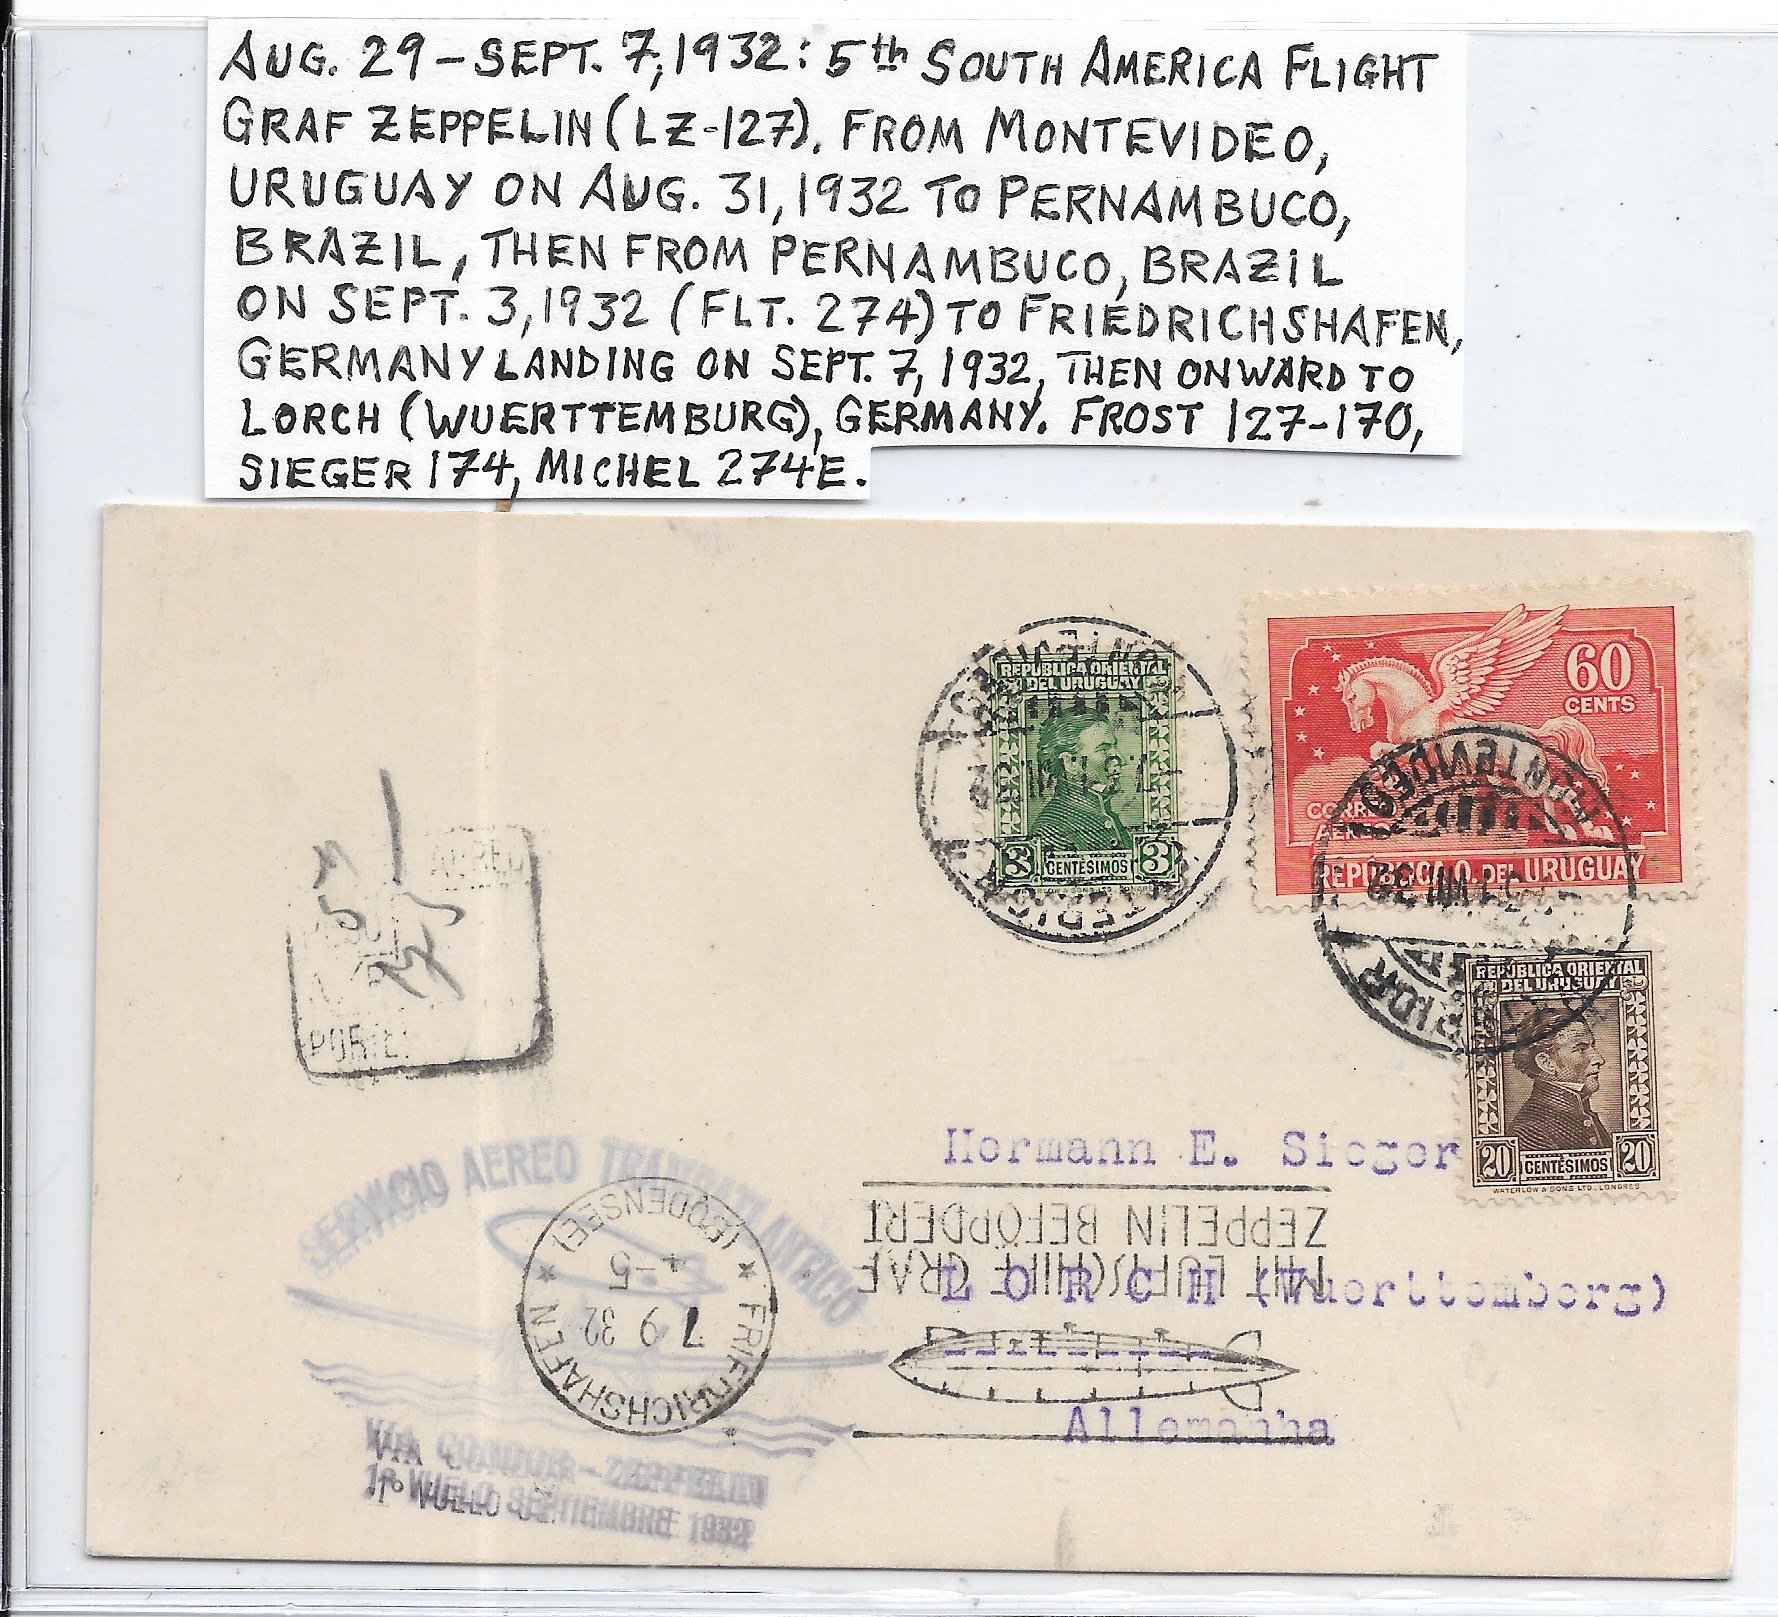 AUG. 29 – SEPT. 7, 1932: 5th SOUTH AMERICA FLIGHT
GRAF ZEPPELIN (LZ-127). FROM MONTEVIDEO,
URUGUAY ON AUG. 31, 1932 TO PERNAMBUCO,
BRAZIL, THEN FROM PERNAMBUCO, BRAZIL
ON SEPT. 3, 1932 (FLT. 274) TO FRIEDRICHSHAFEN,
GERMANY LANDING ON SEPT. 7, 1932, THEN ONWARD TO
LORCH (WUERTTEMBURG), GERMANY. FROST 127-170,
SIEGER 174, MICHEL 274E.
MONTEVIDEO
REPUBLICA ORIENTAL
DEL URUGUAY
3 CENTÉSIMOS 3
WATERLOW & SONS LTD. LONDRES
60
CENTS
CORREO
AEREO
REPÚBLICA O. DEL URUGUAY
MONTEVIDEO
31 VIII 32
REPUBLICA ORIENTAL
DEL URUGUAY
20 CENTÉSIMOS 20
WATERLOW & SONS LTD., LONDRES
AEREO
PORTE
SERVICIO AEREO TRANSATLANTICO
VIA CONDOR-ZEPPELIN
1er VUELO SEPTIEMBRE 1932
FRIEDRICHSHAFEN
(BODENSEE)
7 9 32
4-5
Hermann E. Sieger
MIT LUFTSCHIFF GRAF
ZEPPELIN BEFÖRDERT
L O R C H (Wuerttemberg)
Allemanha